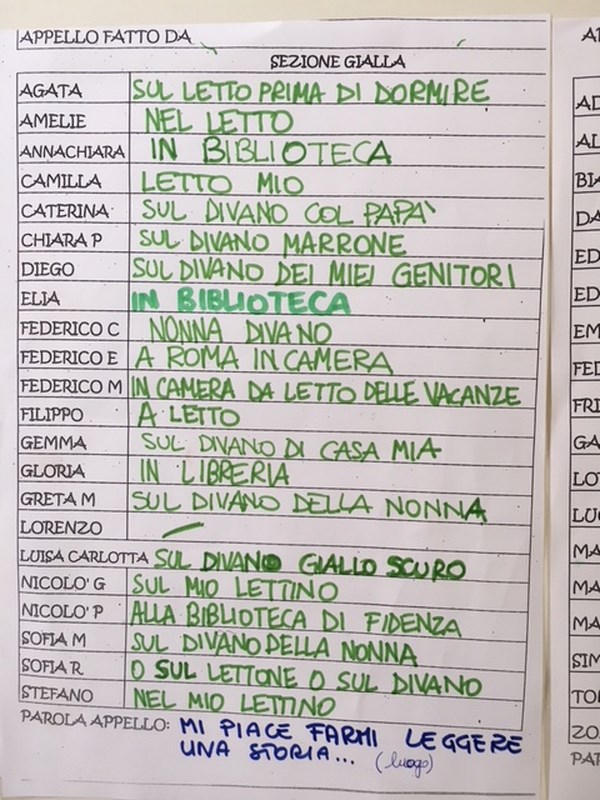 APPELLO FATTO DA
SEZIONE GIALLA
AGATA SUL LETTO PRIMA DI DORMIRE
AMELIE NEL LETTO
ANNACHIARA IN BIBLIOTECA
CAMILLA LETTO MIO
CATERINA SUL DIVANO COL PAPA'
CHIARA P SUL DIVANO MARRONE
DIEGO SUL DIVANO DEI MIEI GENITORI
ELIA IN BIBLIOTECA
FEDERICO C NONNA DIVANO
FEDERICO E A ROMA IN CAMERA
FEDERICO M IN CAMERA DA LETTO DELLE VACANZE
FILIPPO A LETTO
GEMMA SUL DIVANO DI CASA MIA
GLORIA IN LIBRERIA
GRETA M SUL DIVANO DELLA NONNA
LORENZO
LUISA CARLOTTA SUL DIVANO GIALLO SCURO
NICOLO' G SUL MIO LETTINO
NICOLO' P ALLA BIBLIOTECA DI FIDENZA
SOFIA M SUL DIVANO DELLA NONNA
SOFIA R O SUL LETTONE O SUL DIVANO
STEFANO NEL MIO LETTINO
PAROLA APPELLO: MI PIACE FARMI LEGGERE
UNA STORIA... (luogo)